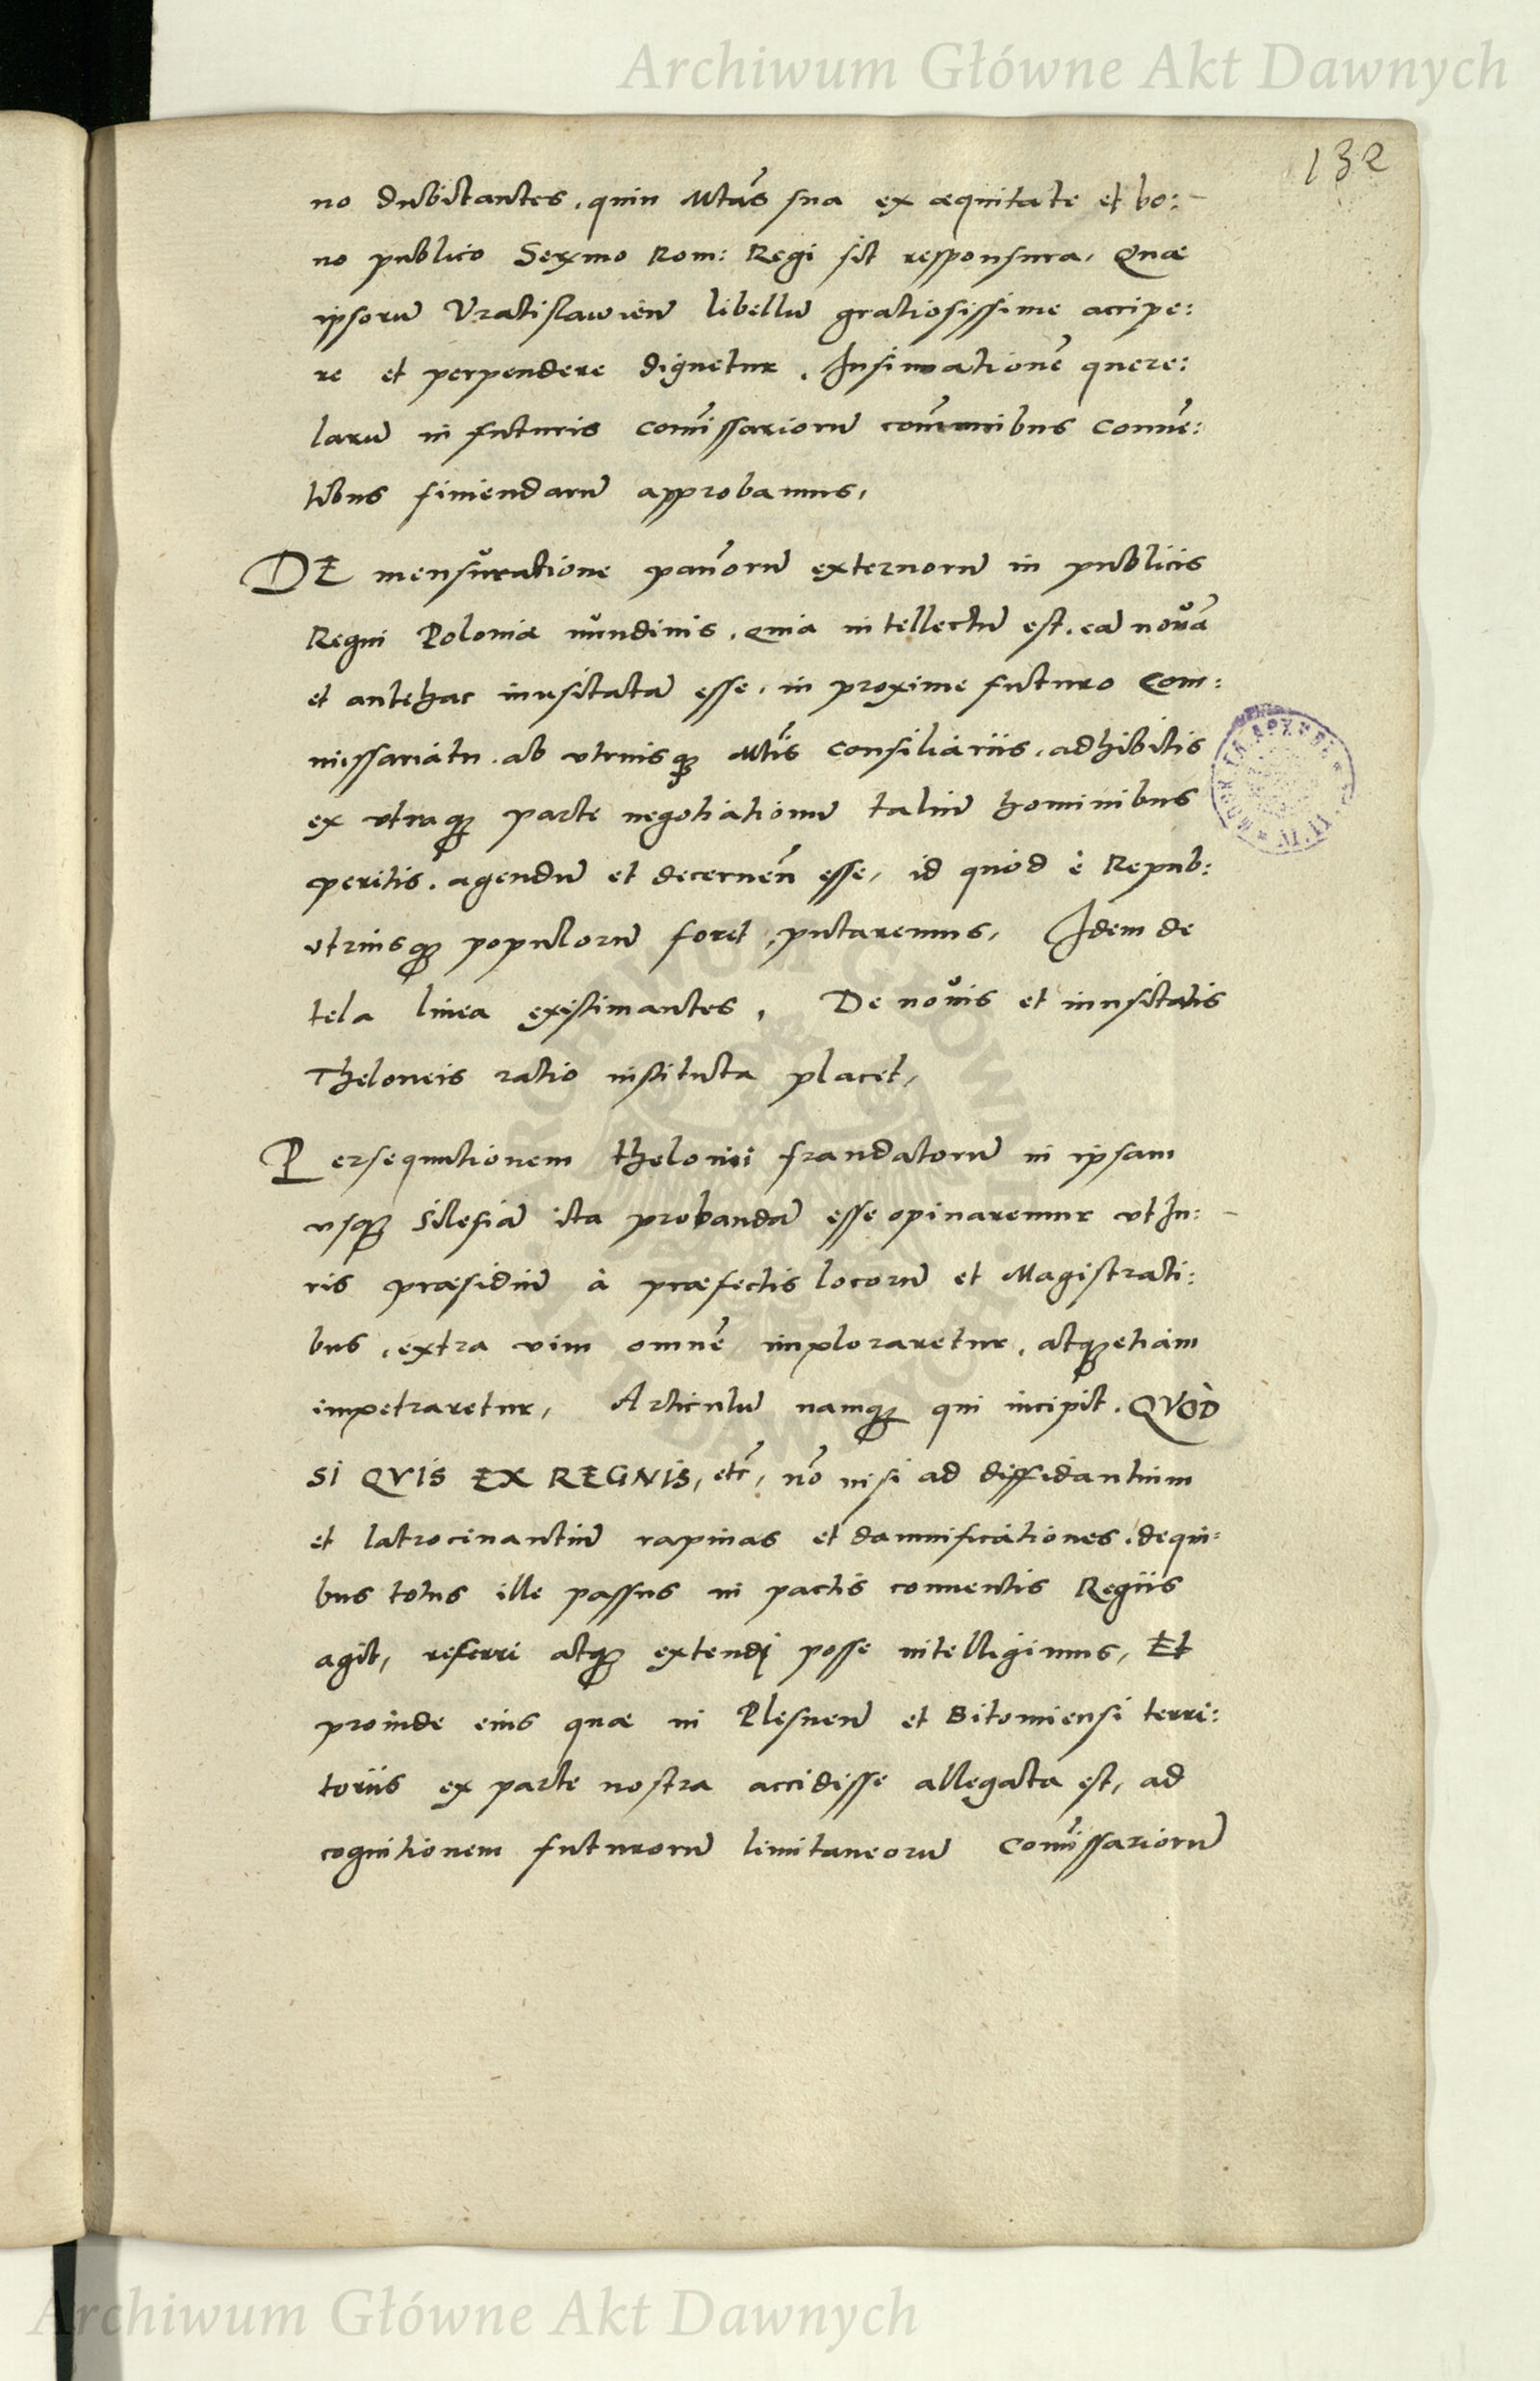 Archiwum Główne Akt Dawnych
132
no dubitantes, quin Mtas̃ sua ex aequitate et bo:
no publico Serᵐᵒ Rom: Regi sit responsura, Quae
ipsorũ Vratislawieñ libellũ gratiosissime accipe:
re et perpendere dignetur. Insinuationẽ quere:
larũ in futuris com̃issariorũ com̃unibus conuẽ:
tibus finiendarũ approbamus,
DE mensuratione pañorũ externorũ in publicis
Regni Poloniæ nundinis, quia intellectũ est, eã nouã
et antehac inusitatã esse, in proxime futuro Com:
missariatu, ab utriusq̃ Mtis̃ consiliariis, adhibitis
ex utraq̃ parte negotiationũ taliũ hominibus
peritis, agendũ et decerneñ esse, id quod è Repub:
utriusq̃ populorũ foret, putaremus, Idem de
tela linea existimantes, De nouis et inusitatis
Theloneis ratio instituta placet,
Persequutionem thelonii fraudatorũ in ipsam
usq̃ Silesiã ita probandã esse opinaremur ut Iu:
ris præsidiũ à præfectis locorũ et Magistrati:
bus, extra vim omnẽ imploraretur, atq̃ etiam
impetraretur, Articulũ namq̃ qui incipit, QVÒD
SI QVIS EX REGNIS, etc̃, nõ nisi ad diffidantium
et latrocinantiũ rapinas et damnificationes, de qui:
bus totus ille passus in pactis conuentis Regiis
agit, referri atq̃ extendi posse intelligimus, Et
proinde eius quae in Plesneñ et Bitomiensi terri:
toriis ex parte nostra accidisse allegata est, ad
cognitionem futurorũ limitaneorũ Com̃issariorũ
Archiwum Główne Akt Dawnych